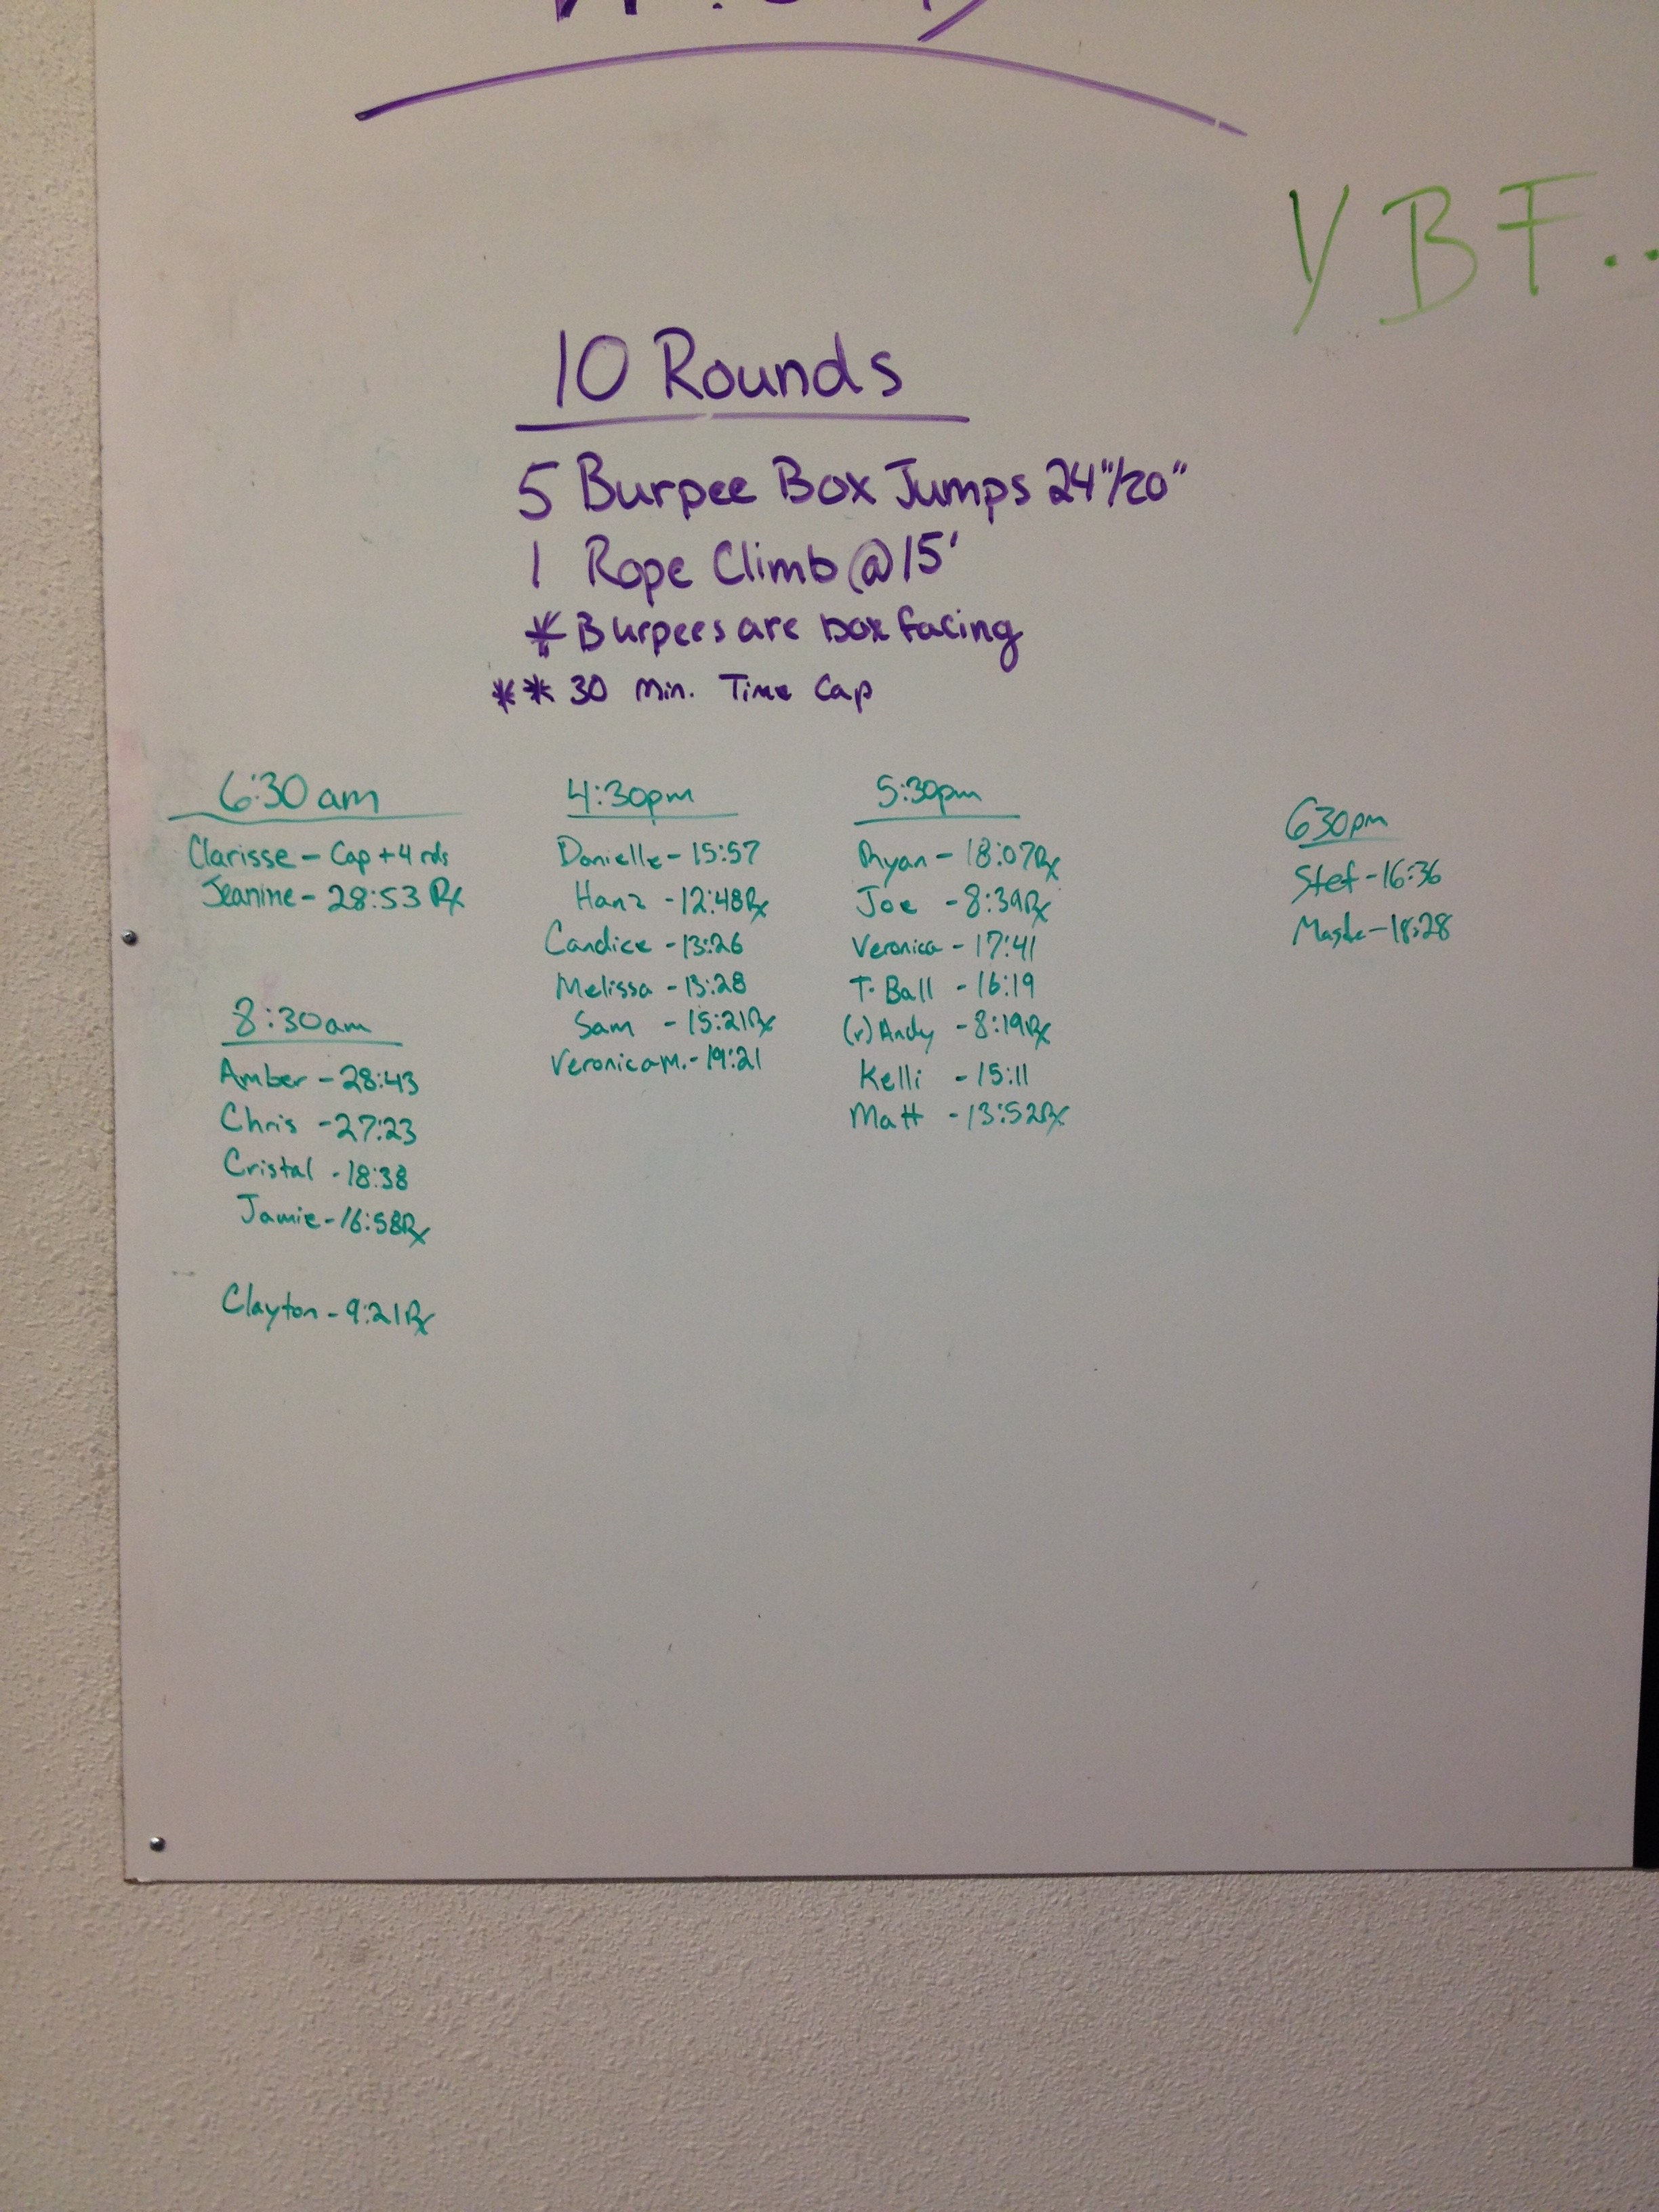 YBF..
10 Rounds
5 Burpee Box Jumps 24"/20"
1 Rope Climb @ 15'
* Burpees are box facing
** 30 Min. Time Cap
6:30am
Clarisse - Cap + 4 rds
Jeanine - 28:53 Rx
8:30am
Amber - 28:43
Chris - 27:23
Cristal - 18:38
Jamie - 16:58Rx
Clayton - 9:21Rx
4:30pm
Danielle - 15:57
Hanz - 12:48Rx
Candice - 13:26
Melissa - 13:28
Sam - 15:21Rx
Veronica M. - 19:21
5:30pm
Ryan - 18:07Rx
Joe - 8:39Rx
Veronica - 17:41
T-Ball - 16:19
(r) Andy - 8:19Rx
Kelli - 15:11
Matt - 13:52Rx
630pm
Stef - 16:36
- 18:28